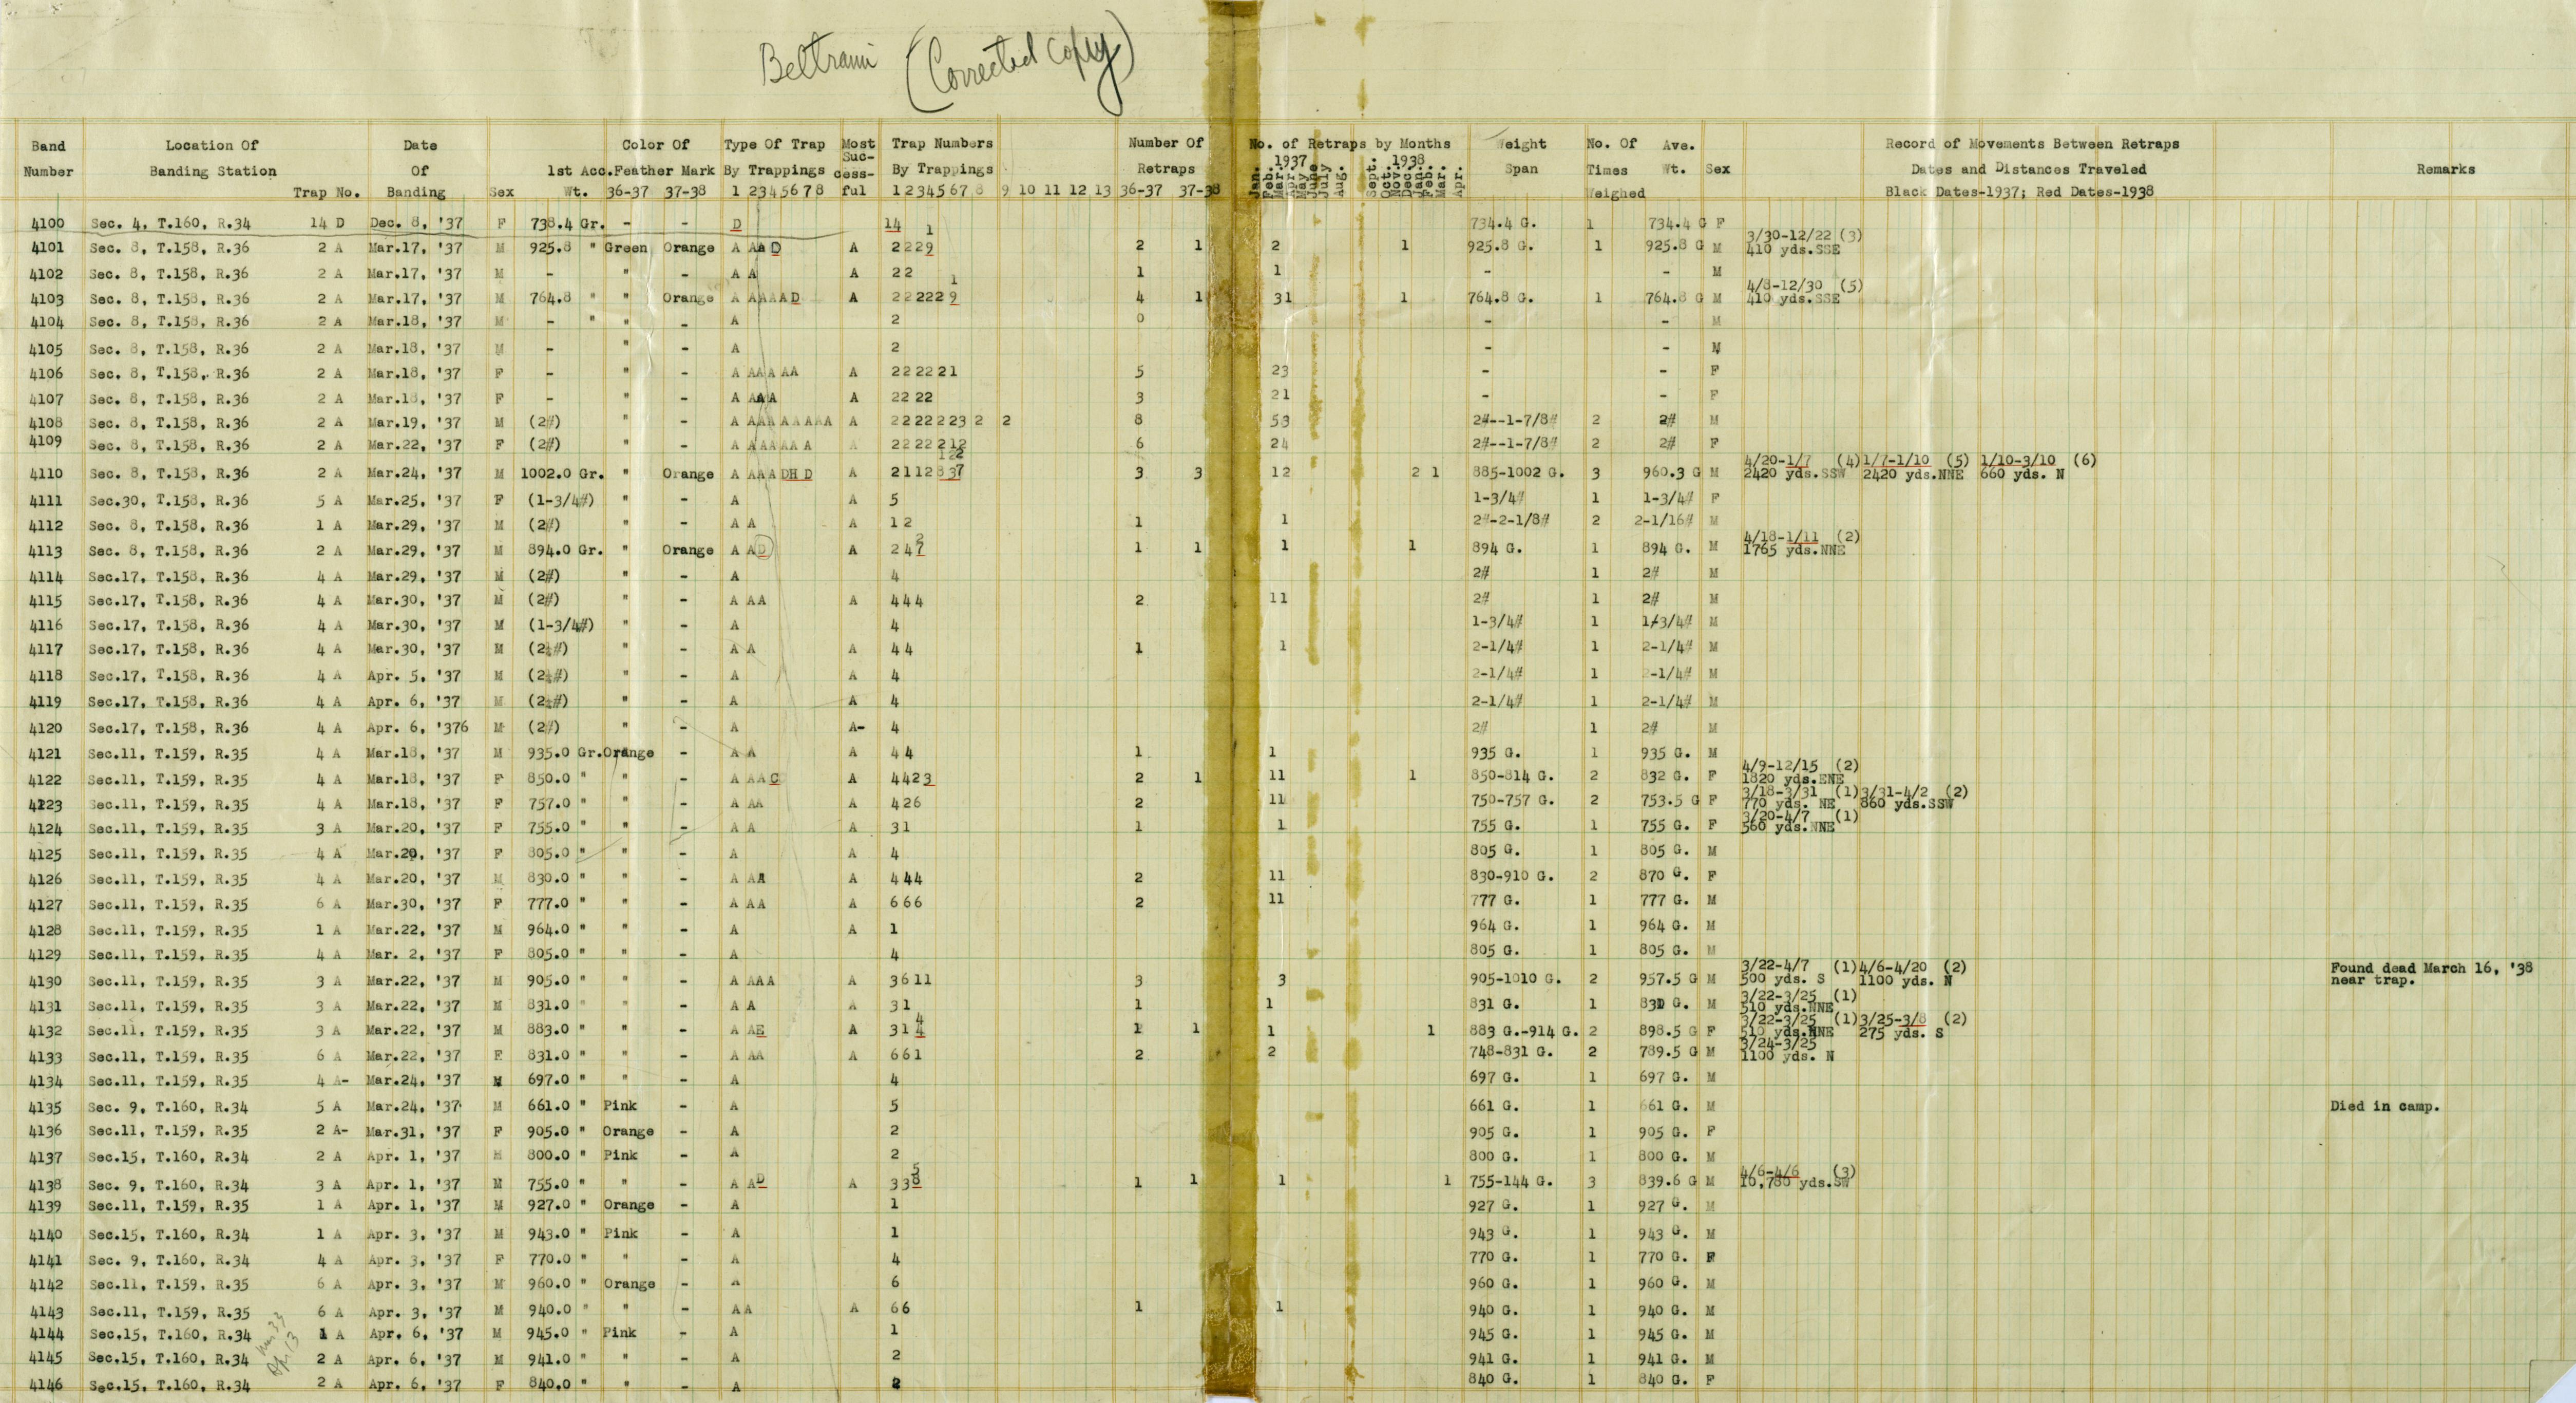 Beltrami (Corrected copy)
Band Location Of Date Color Of Type Of Trap Most Trap Numbers Number Of No. of Retraps by Months Weight No. Of Ave. Record of Movements Between Retraps
Suc- 1937 1938
Number Banding Station Of 1st Acc. Feather Mark By Trappings cess- By Trappings Retraps Span Times Wt. Sex Dates and Distances Traveled Remarks
Trap No. Banding Sex Wt. 36-37 37-38 1 2 3 4 5 6 7 8 ful 1 2 3 4 5 6 7 8 9 10 11 12 13 36-37 37-38 Jan. Feb. Mar. Apr. May June July Aug. Sept. Oct. Nov. Dec. Jan. Feb. Mar. Apr. Weighed Black Dates-1937; Red Dates-1938
4100 Sec. 4, T.160, R.34 14 D Dec. 8, '37 F 738.4 Gr. - - D 14 1 734.4 G. 1 734.4 G F
4101 Sec. 8, T.158, R.36 2 A Mar.17, '37 M 925.8 " Green Orange A AA D A 2229 2 1 2 1 925.8 G. 1 925.8 G M 3/30-12/22 (3) 410 yds.SSE
4102 Sec. 8, T.158, R.36 2 A Mar.17, '37 M - " - A A A 22 1 1 - - M
4103 Sec. 8, T.158, R.36 2 A Mar.17, '37 M 764.8 " " Orange A AAAAD A 222229 1 4 1 31 1 764.8 G. 1 764.8 G M 4/8-12/30 (5) 410 yds.SSE
4104 Sec. 8, T.158, R.36 2 A Mar.18, '37 M - " " - A 2 0 - - M
4105 Sec. 8, T.158, R.36 2 A Mar.18, '37 M - " - A 2 - - M
4106 Sec. 8, T.158, R.36 2 A Mar.18, '37 F - " - A AAAAA A 222221 5 23 - - F
4107 Sec. 8, T.158, R.36 2 A Mar.18, '37 F - " - A AAA A 2222 3 21 - - F
4108 Sec. 8, T.158, R.36 2 A Mar.19, '37 M (2#) " - A AAAAAAAA A 22222232 2 8 53 2#--1-7/8# 2 2# M
4109 Sec. 8, T.158, R.36 2 A Mar.22, '37 F (2#) " - A AAAAAA A 2222212 6 24 2#--1-7/8# 2 2# F
4110 Sec. 8, T.158, R.36 2 A Mar.24, '37 M 1002.0 Gr. " Orange A AAADHD A 2112837 122 3 3 12 2 1 885-1002 G. 3 960.3 G M 4/20-1/7 (4) 1/7-1/10 (5) 1/10-3/10 (6) 2420 yds.SSW 2420 yds.NNE 660 yds. N
4111 Sec.30, T.158, R.36 5 A Mar.25, '37 F (1-3/4#) " - A A 5 1-3/4# 1 1-3/4# F
4112 Sec. 8, T.158, R.36 1 A Mar.29, '37 M (2#) " - A A A 12 1 1 2#-2-1/8# 2 2-1/16# M
4113 Sec. 8, T.158, R.36 2 A Mar.29, '37 M 894.0 Gr. " Orange A AD A 247 2 1 1 1 1 894 G. 1 894 G. M 4/18-1/11 (2) 1765 yds.NNE
4114 Sec.17, T.158, R.36 4 A Mar.29, '37 M (2#) " - A 4 2# 1 2# M
4115 Sec.17, T.158, R.36 4 A Mar.30, '37 M (2#) " - A AA A 444 2 11 2# 1 2# M
4116 Sec.17, T.158, R.36 4 A Mar.30, '37 M (1-3/4#) " - A 4 1-3/4# 1 1/3/4# M
4117 Sec.17, T.158, R.36 4 A Mar.30, '37 M (2¼#) " - A A A 44 1 1 2-1/4# 1 2-1/4# M
4118 Sec.17, T.158, R.36 4 A Apr. 5, '37 M (2¼#) " - A A 4 2-1/4# 1 2-1/4# M
4119 Sec.17, T.158, R.36 4 A Apr. 6, '37 M (2¼#) " - A A 4 2-1/4# 1 2-1/4# M
4120 Sec.17, T.158, R.36 4 A Apr. 6, '376 M (2#) " - A A- 4 2# 1 2# M
4121 Sec.11, T.159, R.35 4 A Mar.18, '37 M 935.0 Gr. Orange - A A A 44 1 1 935 G. 1 935 G. M
4122 Sec.11, T.159, R.35 4 A Mar.18, '37 F 850.0 " " - A AAC A 4423 2 1 11 1 850-814 G. 2 832 G. F 4/9-12/15 (2) 1820 yds.ENE
4123 Sec.11, T.159, R.35 4 A Mar.18, '37 F 757.0 " " - A AA A 426 2 11 750-757 G. 2 753.5 G F 3/18-3/31 (1) 3/31-4/2 (2) 770 yds. NE 860 yds.SSW
4124 Sec.11, T.159, R.35 3 A Mar.20, '37 F 755.0 " " - A A A 31 1 1 755 G. 1 755 G. F 3/20-4/7 (1) 560 yds.NNE
4125 Sec.11, T.159, R.35 4 A Mar.20, '37 F 805.0 " " - A A 4 805 G. 1 805 G. M
4126 Sec.11, T.159, R.35 4 A Mar.20, '37 M 830.0 " " - A AA A 444 2 11 830-910 G. 2 870 G. F
4127 Sec.11, T.159, R.35 6 A Mar.30, '37 F 777.0 " " - A AA A 666 2 11 777 G. 1 777 G. M
4128 Sec.11, T.159, R.35 1 A Mar.22, '37 M 964.0 " " - A A 1 964 G. 1 964 G. M
4129 Sec.11, T.159, R.35 4 A Mar. 2, '37 F 805.0 " " - A 4 805 G. 1 805 G. M
4130 Sec.11, T.159, R.35 3 A Mar.22, '37 M 905.0 " " - A AAA A 3611 3 3 905-1010 G. 2 957.5 G M 3/22-4/7 (1) 4/6-4/20 (2) 500 yds. S 1100 yds. N Found dead March 16, '38 near trap.
4131 Sec.11, T.159, R.35 3 A Mar.22, '37 M 831.0 " " - A A A 31 1 1 831 G. 1 831 G. M 3/22-3/25 (1) 510 yds.NNE
4132 Sec.11, T.159, R.35 3 A Mar.22, '37 M 883.0 " " - A AE A 314 4 1 1 1 1 883 G.-914 G. 2 898.5 G F 3/22-3/25 (1) 3/25-3/8 (2) 510 yds.NNE 275 yds. S
4133 Sec.11, T.159, R.35 6 A Mar.22, '37 F 831.0 " " - A AA A 661 2 2 748-831 G. 2 789.5 G M 3/24-3/25 1100 yds. N
4134 Sec.11, T.159, R.35 4 A- Mar.24, '37 M 697.0 " " - A 4 697 G. 1 697 G. M
4135 Sec. 9, T.160, R.34 5 A Mar.24, '37 M 661.0 " Pink - A 5 661 G. 1 661 G. M Died in camp.
4136 Sec.11, T.159, R.35 2 A- Mar.31, '37 F 905.0 " Orange - A 2 905 G. 1 905 G. F
4137 Sec.15, T.160, R.34 2 A Apr. 1, '37 M 800.0 " Pink - A 2 800 G. 1 800 G. M
4138 Sec. 9, T.160, R.34 3 A Apr. 1, '37 M 755.0 " " - A AD A 338 5 1 1 1 1 755-144 G. 3 839.6 G M 4/6-4/6 (3) 10,780 yds.SW
4139 Sec.11, T.159, R.35 1 A Apr. 1, '37 M 927.0 " Orange - A 1 927 G. 1 927 G. M
4140 Sec.15, T.160, R.34 1 A Apr. 3, '37 M 943.0 " Pink - A 1 943 G. 1 943 G. M
4141 Sec. 9, T.160, R.34 4 A Apr. 3, '37 F 770.0 " " - A 4 770 G. 1 770 G. F
4142 Sec.11, T.159, R.35 6 A Apr. 3, '37 M 960.0 " Orange - A 6 960 G. 1 960 G. M
4143 Sec.11, T.159, R.35 6 A Apr. 3, '37 M 940.0 " " - AA A 66 1 1 940 G. 1 940 G. M
4144 Sec.15, T.160, R.34 1 A Apr. 6, '37 M 945.0 " Pink - A 1 945 G. 1 945 G. M
4145 Sec.15, T.160, R.34 2 A Apr. 6, '37 M 941.0 " " - A 2 941 G. 1 941 G. M
4146 Sec.15, T.160, R.34 2 A Apr. 6, '37 F 840.0 " " - A 2 840 G. 1 840 G. F